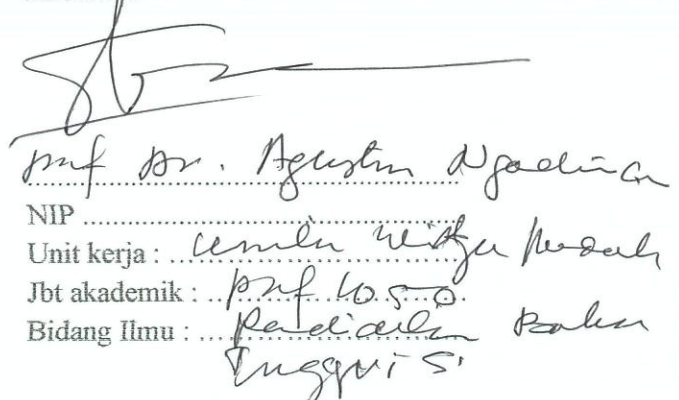 Prof Dr. Agustin Ngadiman
NIP ..........................................
Unit kerja : Unika Widya Mandala
Jbt akademik : Prof 1050
Bidang Ilmu : Pendidikan Bahasa
Inggris